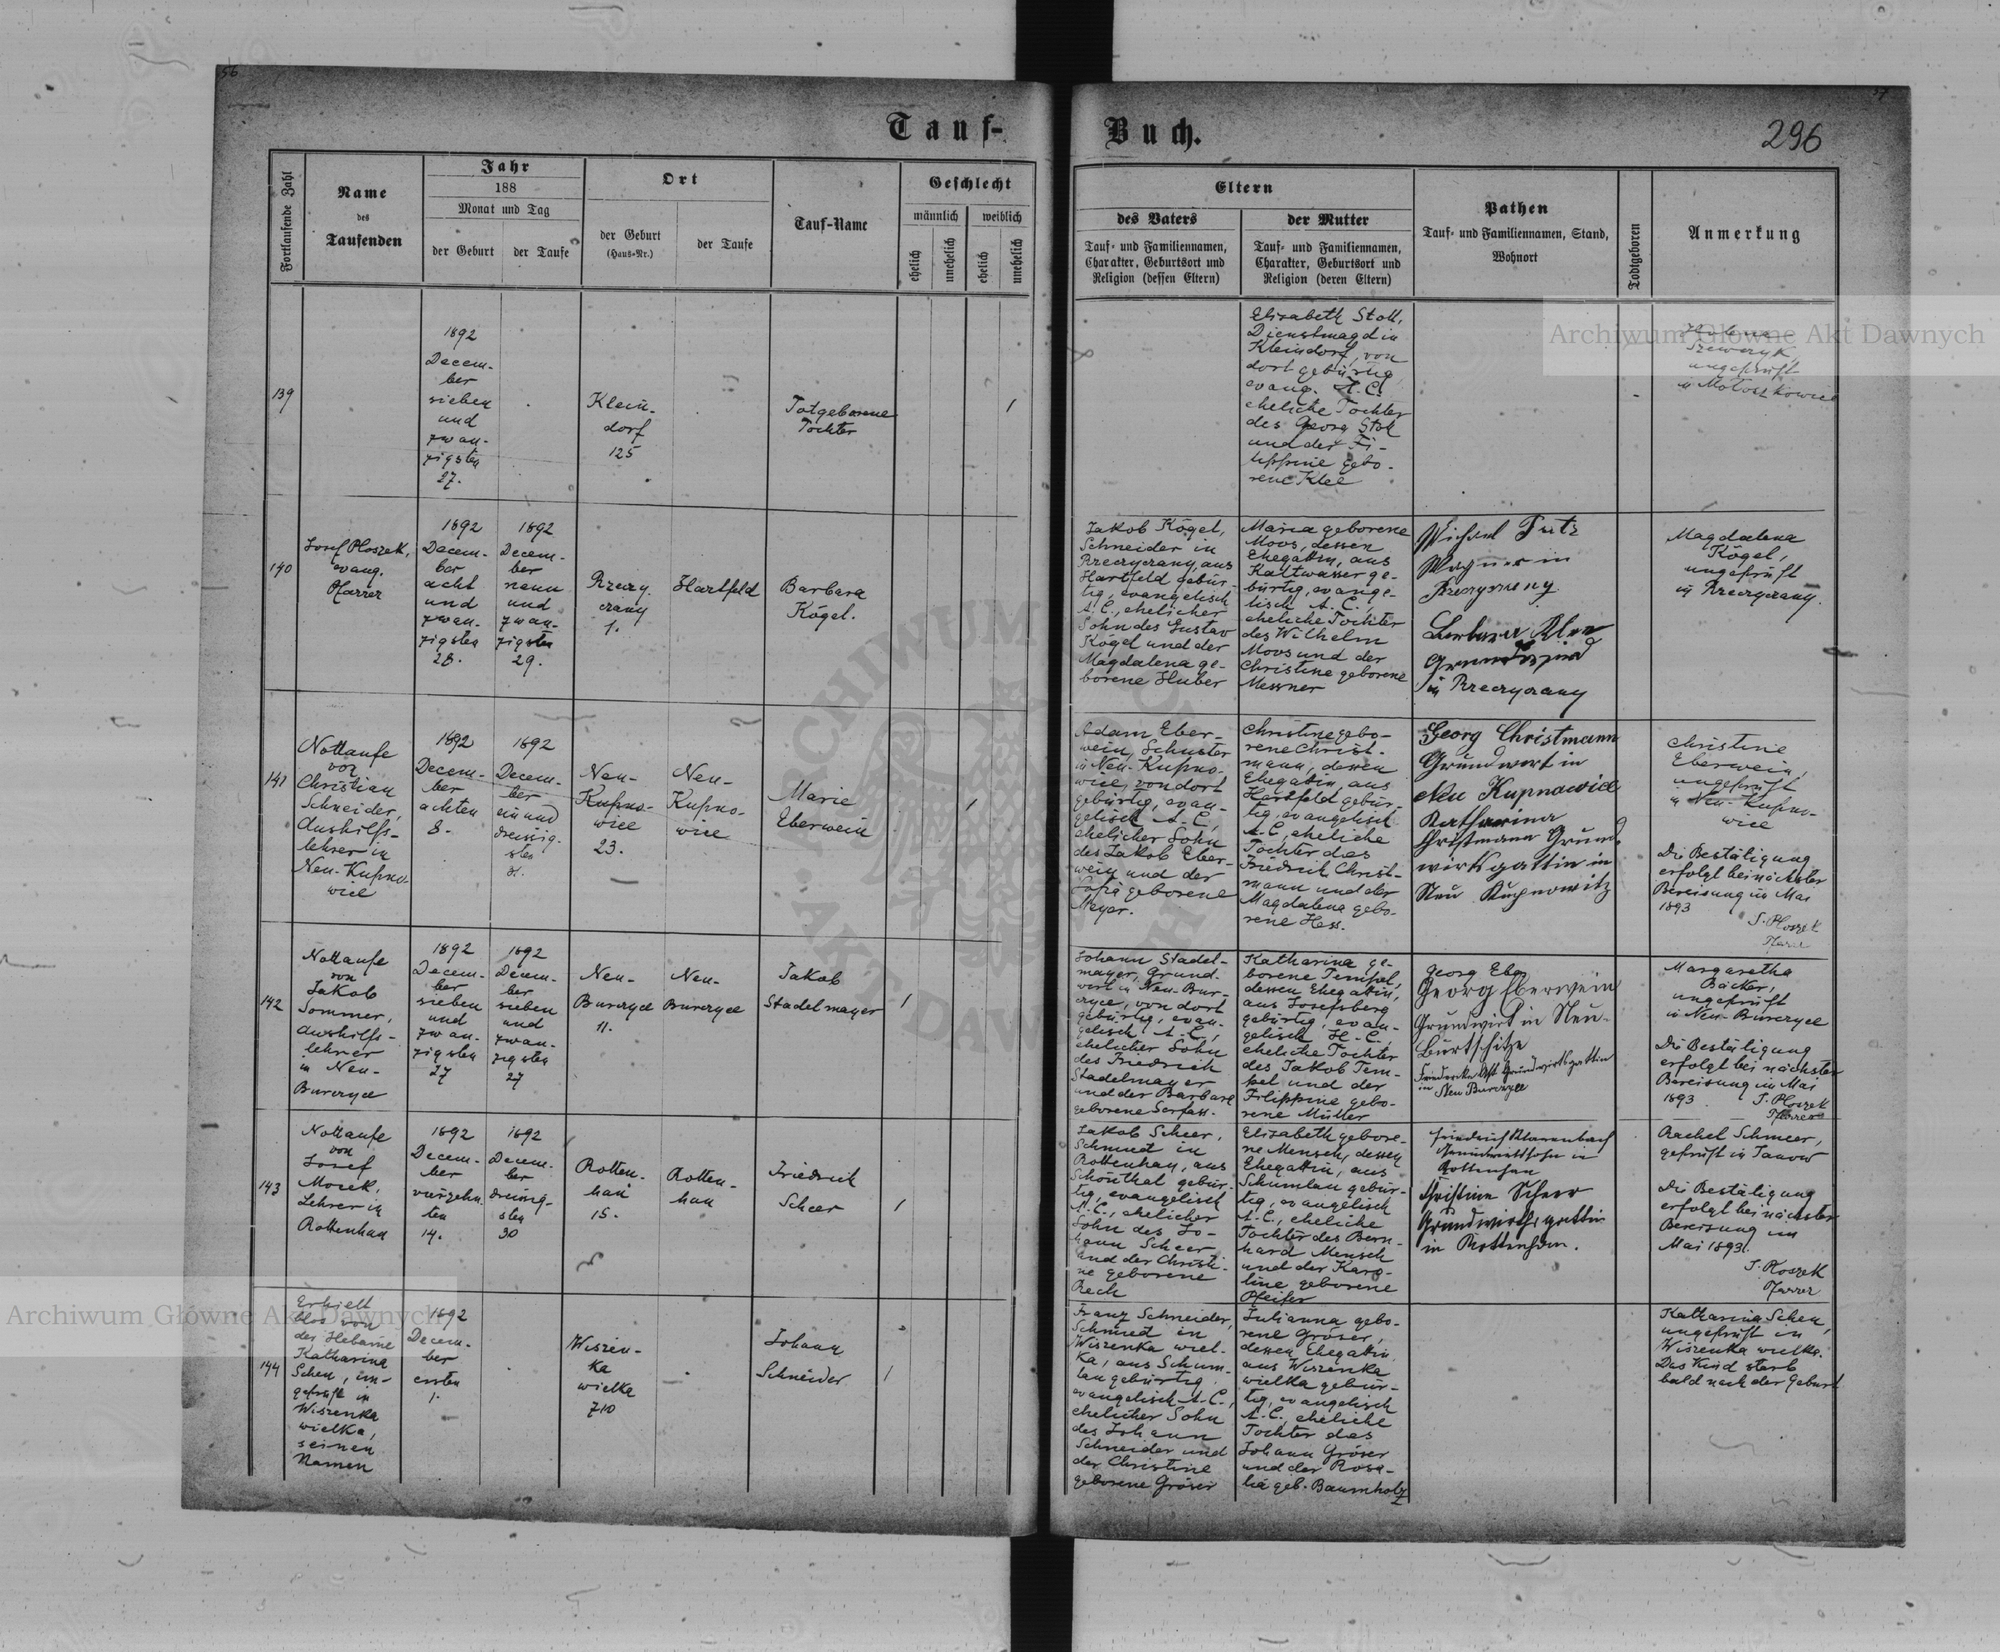 56
57
Tauf-
Buch.
296
Fortlaufende Zahl
Name
des
Taufenden
Jahr
188
Monat und Tag
der Geburt
der Taufe
Ort
der Geburt
(Haus-Nr.)
der Taufe
Tauf-Name
Geschlecht
männlich
weiblich
ehelich
unehelich
ehelich
unehelich
Eltern
des Vaters
Tauf- und Familiennamen,
Charakter, Geburtsort und
Religion (dessen Eltern)
der Mutter
Tauf- und Familiennamen,
Charakter, Geburtsort und
Religion (deren Eltern)
Pathen
Tauf- und Familiennamen, Stand,
Wohnort
Todtgeboren
Anmerkung
139
1892
Decem-
ber
sieben
und
zwan-
zigsten
27.
Klein-
dorf
125
Totgeborene
Tochter
1
Elisabeth Stoll,
Dienstmagd in
Kleindorf, von
dort gebürtig
evang. H.C.
eheliche Tochter
des Georg Stoll
und der Fi-
lippine gebo-
rene Klee
Szewczyk,
ungeprüft
in
140
Josef Ploszek,
evang.
Pfarrer
1892
Decem-
ber
acht
und
zwan-
zigsten
28.
1892
Decem-
ber
neun
und
zwan-
zigsten
29.
Rzeczy-
czany
1.
Hartfeld
Barbara
Kögel.
Jakob Kögel,
Schneider in
Rzeczyczany, aus
Hartfeld gebür-
tig, evangelisch
A.C., ehelicher
Sohn des Gustav
Kögel und der
Magdalena ge-
borene Huber
Maria geborene
Moos, dessen
Ehegattin, aus
Kaltwasser ge-
bürtig, evange-
lisch A.C.,
eheliche Tochter
des Wilhelm
Moos und der
Christine geborene
Messner
Michael
Wagner in
Rzeczyczany
Barbara
in Rzeczyczany
Magdalena
Kögel,
ungeprüft
in Rzeczyczany.
141
Nottaufe
von
Christian
Schneider,
Aushilfs-
lehrer in
Neu-Kupno-
wice
1892
Decem-
ber
achten
8.
1892
Decem-
ber
ein und
dreissig-
sten
31.
Neu-
Kupno-
wice
23.
Neu-
Kupno-
wice
Marie
Eberwein
1
Adam Eber-
wein, Schuster
in Neu-Kupno-
wice, von dort
gebürtig, evan-
gelisch A.C.,
ehelicher Sohn
des Jakob Eber-
wein und der
Sofia geborene
Meyer.
Christine gebo-
rene Christ-
mann, dessen
Ehegattin aus
Hartfeld gebür-
tig, evangelisch
A.C., eheliche
Tochter des
Friedrich Christ-
mann und der
Magdalena gebo-
rene Hess.
Georg Christmann
Grundwirt in
Neu Kupnowice
Katharina
Christmann Grund-
wirtsgattin in
Neu Kupnowitz
Christine
Eberwein,
ungeprüft
in Neu-Kupno-
wice
Die Bestätigung
erfolgt bei nächster
Bereisung im Mai
1893
J. Ploszek
Pfarrer
142
Nottaufe
von
Jakob
Sommer,
Aushilfs-
lehrer
in Neu-
Burczyce
1892
Decem-
ber
sieben
und
zwan-
zigsten
27
1892
Decem-
ber
sieben
und
zwan-
zigsten
27
Neu-
Burczyce
11.
Neu-
Burczyce
Jakob
Stadelmayer
1
Johann Stadel-
mayer, Grund-
wirt in Neu-Bur-
czyce, von dort
gebürtig, evan-
gelisch, A.C.,
ehelicher Sohn
des Friedrich
Stadelmayer
und der Barbara
geborene Serfass.
Katharina ge-
borene Tempel,
dessen Ehegattin,
aus Josefsberg
gebürtig, evan-
gelisch H.C.,
eheliche Tochter
des Jakob Tem-
pel und der
Filippine gebo-
rene Müller
Georg Ebe
Georg Eberwein
Grundwirt in Neu-
Burtschitze
Friederike Ast Grundwirtsgattin
in Neu Burczyce
Margaretha
Bäcker,
ungeprüft
in Neu-Burczyce
Die Bestätigung
erfolgt bei nächster
Bereisung im Mai
1893
J. Ploszek
Pfarrer
143
Nottaufe
von
Josef
Mocek,
Lehrer in
Rottenhan
1892
Decem-
ber
vierzehn-
ten
14.
1892
Decem-
ber
dreissig-
sten
30
Rotten-
han
15.
Rotten-
han
Friedrich
Scheer
1
Jakob Scheer,
Schmied in
Rottenhan, aus
Schönthal gebür-
tig, evangelisch
A.C., ehelicher
Sohn des Jo-
hann Scheer
und der Christi-
ne geborene
Rech
Elisabeth gebore-
ne Mensch, dessen
Ehegattin, aus
Schumlau gebür-
tig, evangelisch
A.C., eheliche
Tochter des Bern-
hard Mensch
und der Karo-
line geborene
Pfeifer
Friedrich Klarenbach
Grundwirtssohn in
Rottenhan
Christine Scheer
Grundwirthsgattin
in Rottenhan.
Rachel Schmeer,
geprüft in Janow
Die Bestätigung
erfolgt bei nächster
Bereisung im
Mai 1893.
J. Ploszek
Pfarrer
144
Erhielt
blos von
der Hebame
Katharina
Scheu, un-
geprüft in
Wiszenka
wielka,
seinen
Namen
1892
Decem-
ber
ersten
1.
Wiszen-
ka
wielka
710
Johann
Schneider
1
Franz Schneider,
Schmied in
Wiszenka wiel-
ka, aus Schum-
lau gebürtig,
evangelisch A.C.,
ehelicher Sohn
des Johann
Schneider und
der Christine
geborene Gröser
Julianna gebo-
rene Gröser,
dessen Ehegattin,
aus Wiszenka
wielka gebür-
tig, evangelisch
A.C., eheliche
Tochter des
Johann Gröser
und der Rosa-
lia geb. Baumholz
Katharina Scheu,
ungeprüft in
Wiszenka wielka.
Das Kind starb
bald nach der Geburt
Archiwum Główne Akt Dawnych
Archiwum Główne Akt Dawnych